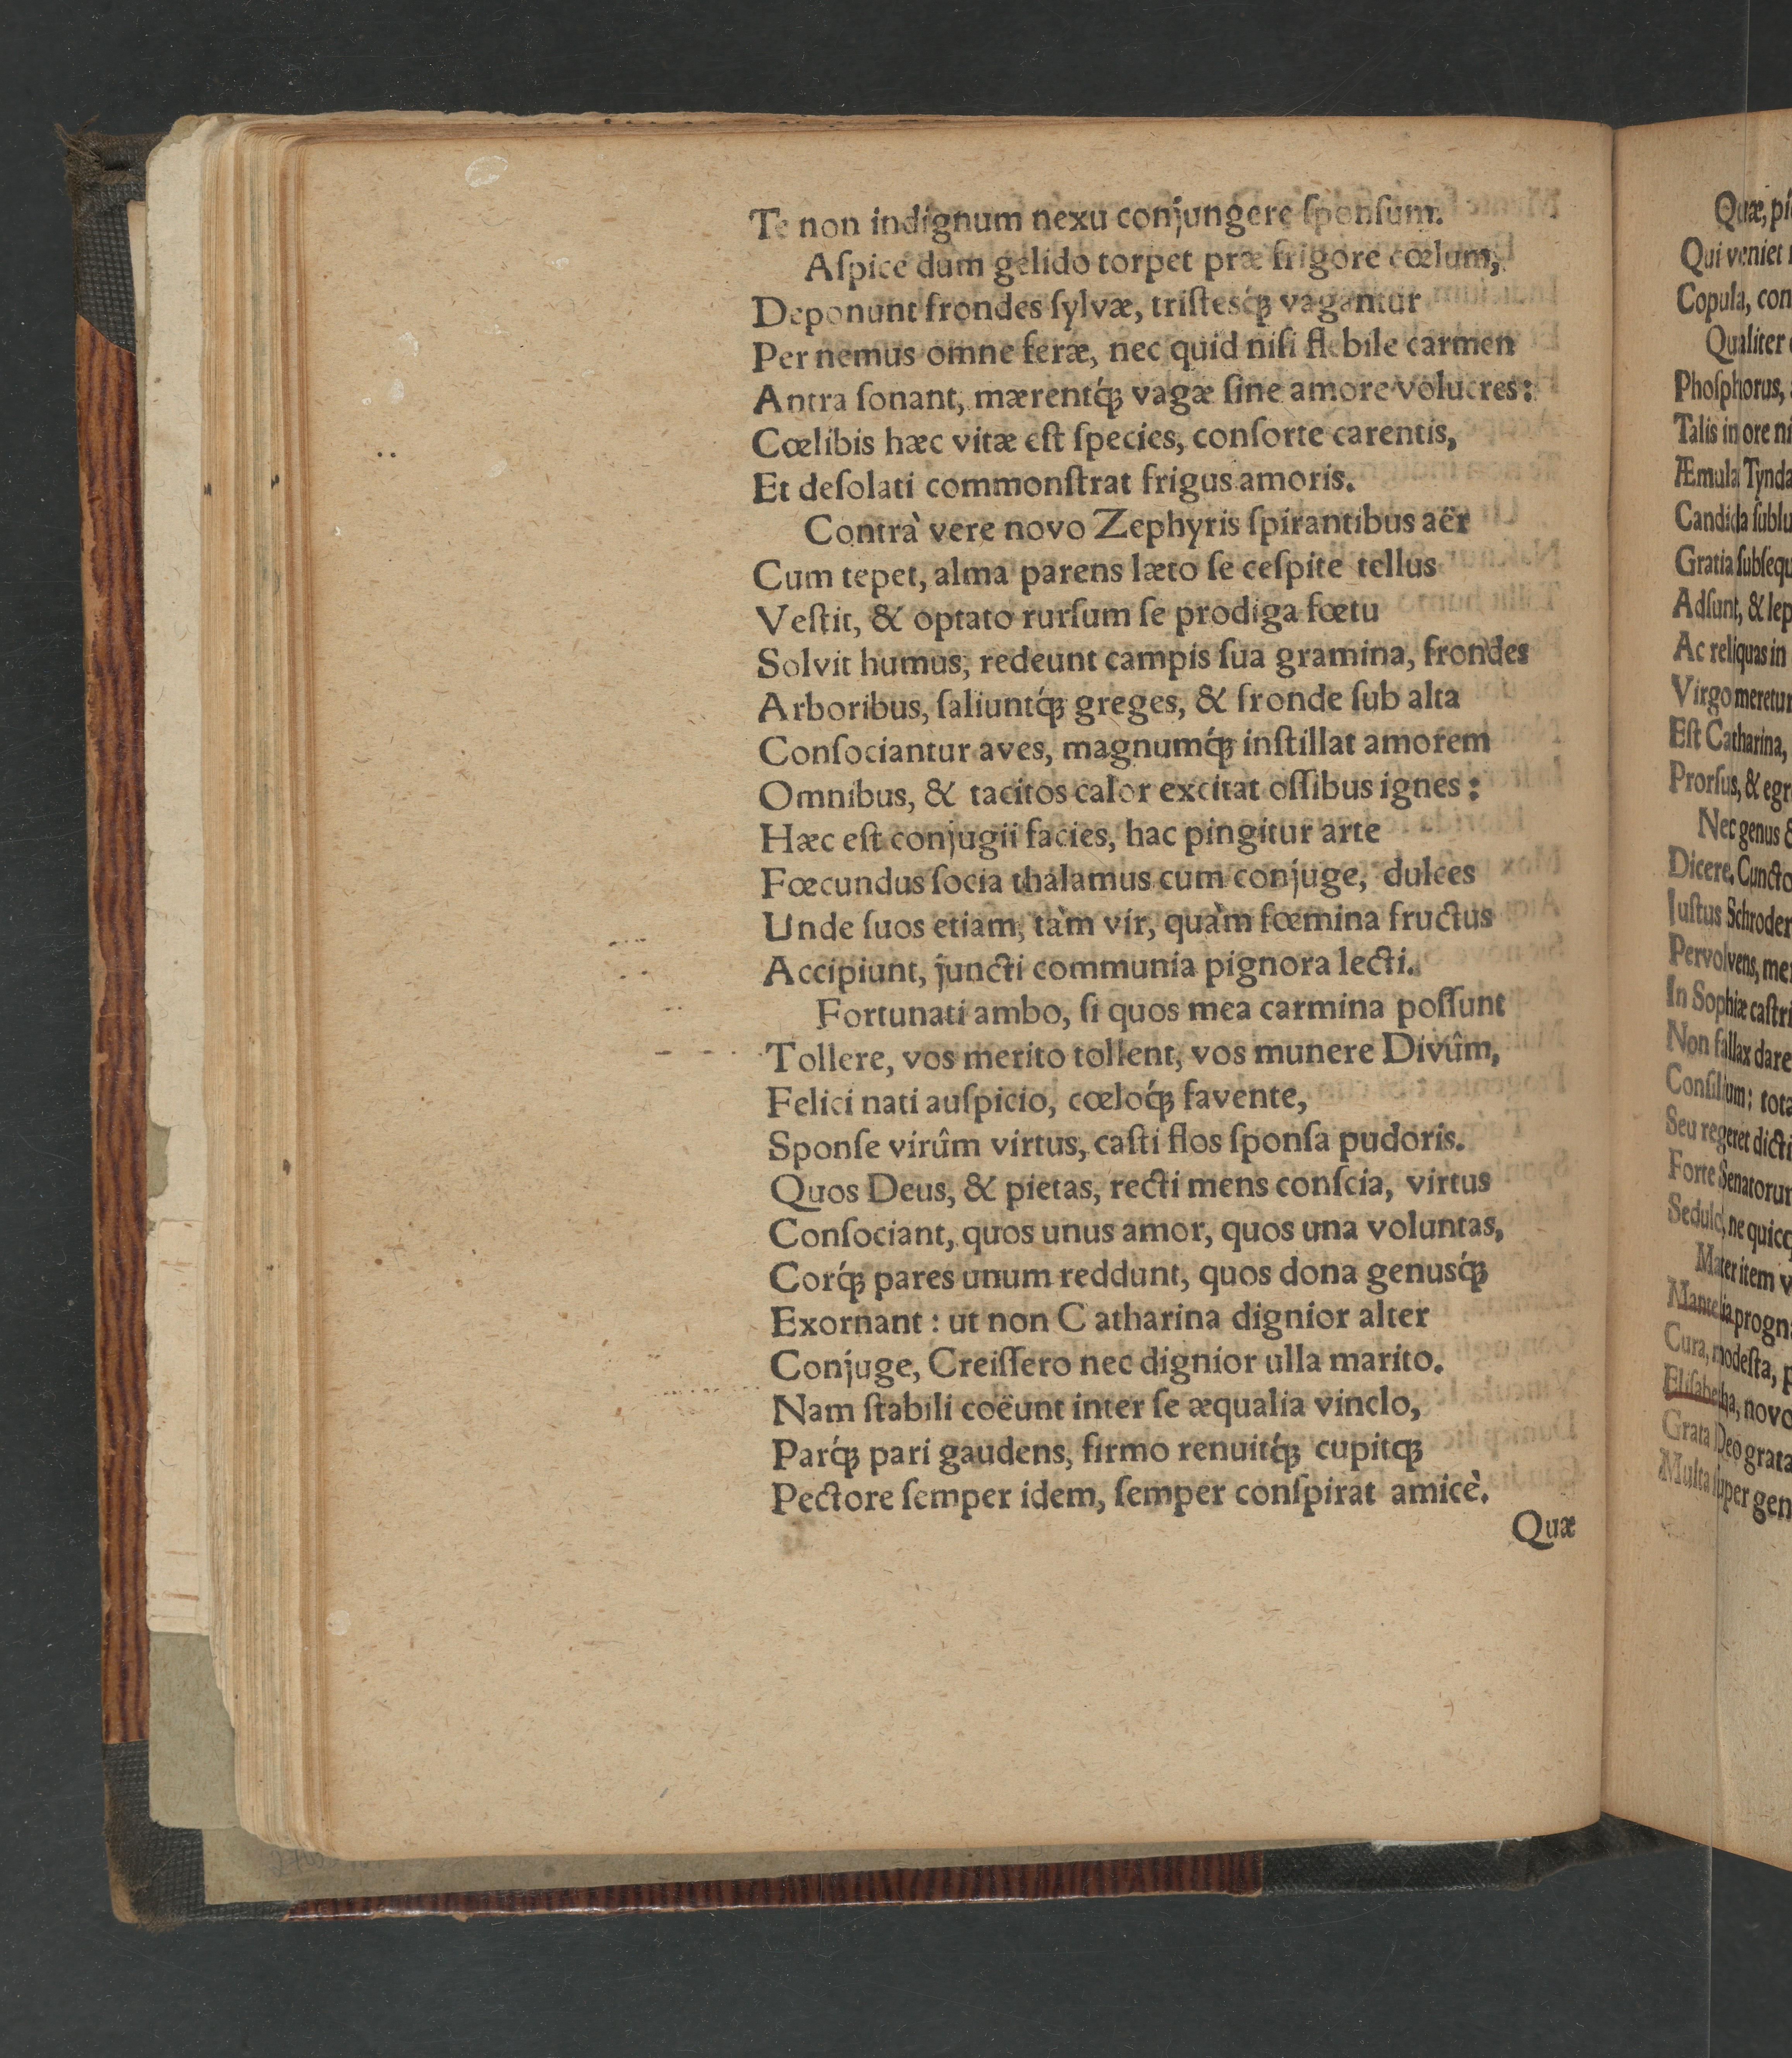 Te non indignum nexu conjungere ſponſum.
Aſpice dum gelido torpet præ frigore cœlum,
Deponunt frondes ſylvæ, triſtesq́ꝫ vagantur
Per nemus omne feræ, nec quid niſi flebile carmen
Antra ſonant, mærentq́ꝫ vagæ ſine amore volucres:
Cœlibis hæc vitæ eſt ſpecies, conſorte carentis,
Et deſolati commonſtrat frigus amoris.
Contrà vere novo Zephyris ſpirantibus aër
Cum tepet, alma parens læto ſe ceſpite tellus
Veſtit, & optato rurſum ſe prodiga fœtu
Solvit humus, redeunt campis ſua gramina, frondes
Arboribus, ſaliuntq́ꝫ greges, & fronde ſub alta
Conſociantur aves, magnumq́ꝫ inſtillat amorem
Omnibus, & tacitos calor excitat oſſibus ignes:
Hæc eſt conjugii facies, hac pingitur arte
Fœcundus ſocia thalamus cum conjuge, dulces
Unde ſuos etiam, tàm vir, quàm fœmina fructus
Accipiunt, juncti communia pignora lecti.
Fortunati ambo, ſi quos mea carmina poſſunt
Tollere, vos merito tollent, vos munere Divûm,
Felici nati auſpicio, cœloq́ꝫ favente,
Sponſe virûm virtus, caſti flos ſponſa pudoris.
Quos Deus, & pietas, recti mens conſcia, virtus
Conſociant, quos unus amor, quos una voluntas,
Corq́ꝫ pares unum reddunt, quos dona genusq́ꝫ
Exornant: ut non Catharina dignior alter
Conjuge, Creiſſero nec dignior ulla marito.
Nam ſtabili coëunt inter ſe æqualia vinclo,
Parq́ꝫ pari gaudens, firmo renuitq́ꝫ cupitqꝫ
Pectore ſemper idem, ſemper conſpirat amicè.
Quæ
Quæ,
Qui veniet
Copula,
Qualiter
Phoſphorus,
Talis in ore
Æmula
Candida
Gratia
Adſunt, &
Ac reliquas in
Virgo meretur
Eſt Catharina,
Prorſus, &
Nec genus
Dicere,
Juſtus Schroder
Pervolvens,
In Sophiæ
Non fallax dare
Conſilium:
Seu regeret
Forte
Sedulo, ne
Mater item
Mantelia
Cura, modeſta,
Eliſabetha,
Grata Deo
Multa ſuper